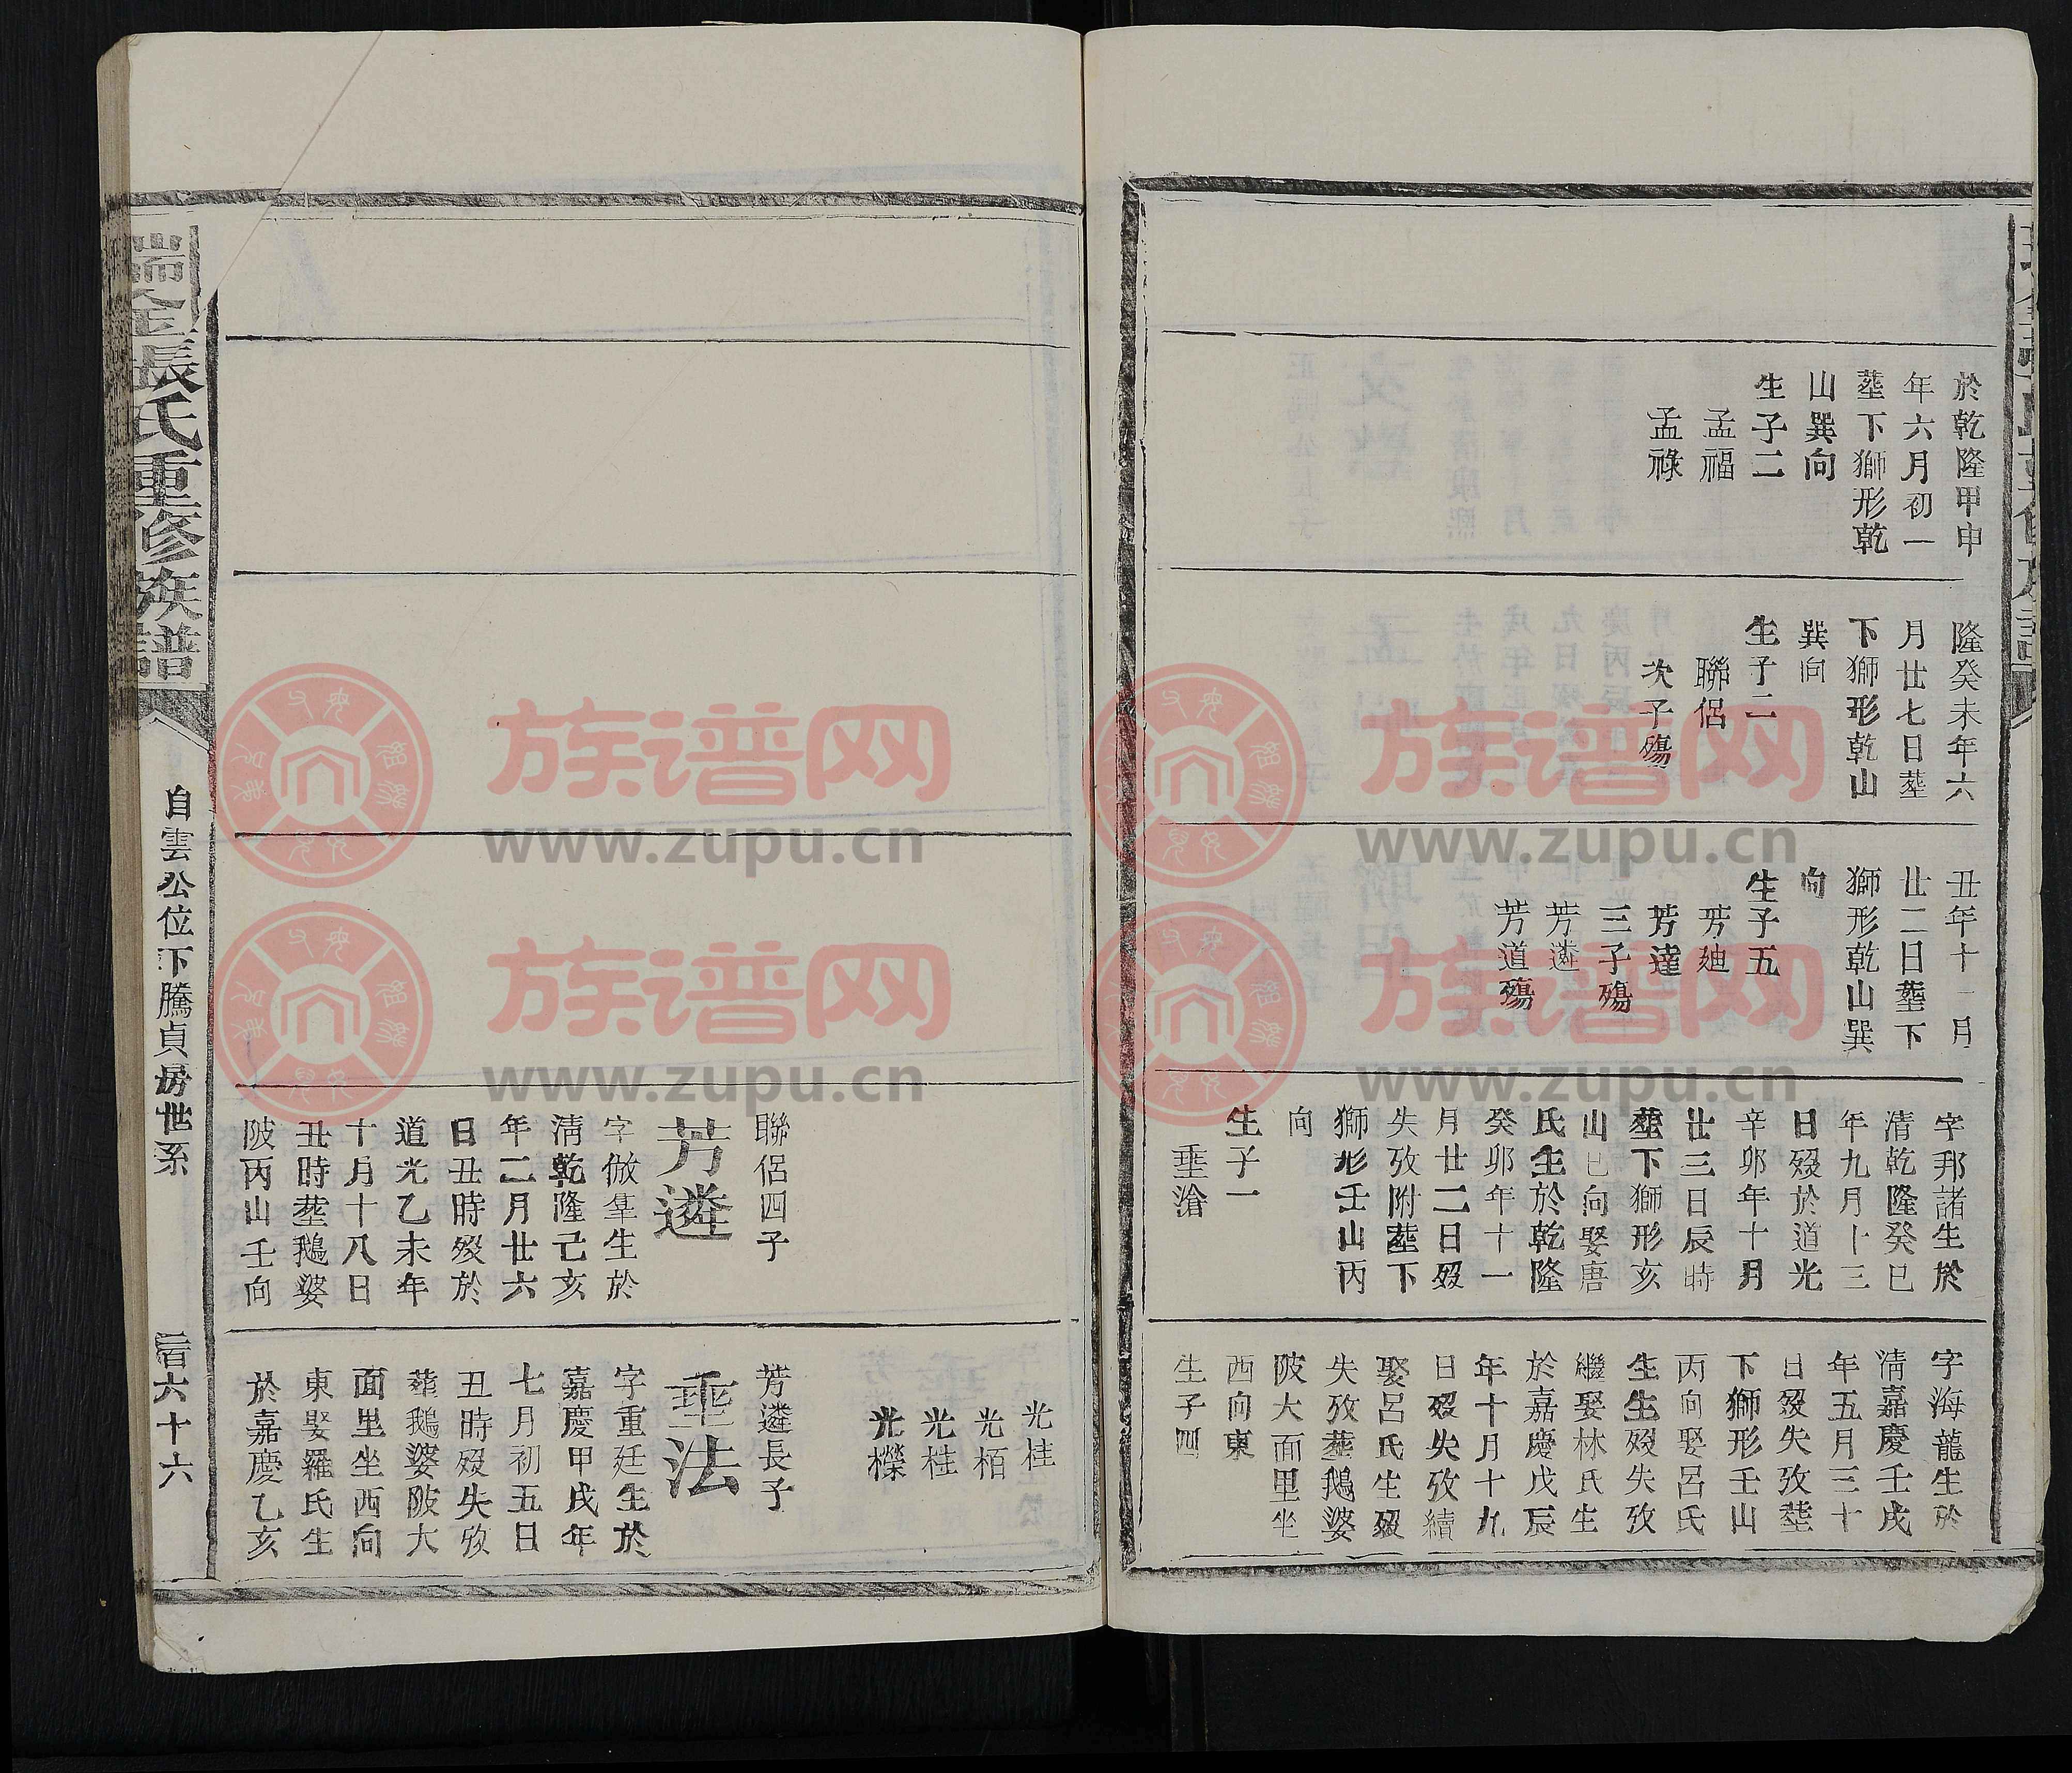 於乾隆甲申
年六月初一
塟下獅形乾
山巽向
生子二
孟福
孟祿
隆癸未年六
月廿七日塟
下獅形乾山
巽向
生子二
聯侶
次子殤
丑年十一月
廿二日塟下
獅形乾山巽
向
生子五
芳廸
芳達
三子殤
芳遴
芳道殤
字邦諸生於
清乾隆癸巳
年九月十三
日歿於道光
辛卯年十月
廿三日辰時
塟下獅形亥
山巳向娶唐
氏生於乾隆
癸卯年十一
月廿二日歿
失攷附塟下
獅形壬山丙
向
生子一
垂滄
字海龍生於
清嘉慶壬戌
年五月三十
日歿失攷塟
下獅形壬山
丙向娶呂氏
生生歿失攷
繼娶林氏生
於嘉慶戊辰
年十月十九
日歿失攷續
娶呂氏生歿
失攷塟鵝婆
陂大面里坐
西向東
生子四
光桂
光栢
光桂
光櫟
聯侶四子
芳遴
字倣羣生於
清乾隆己亥
年二月廿六
日丑時歿於
道光乙未年
十月十八日
丑時塟鵝婆
陂丙山壬向
芳遴長子
垂法
字重廷生於
嘉慶甲戌年
七月初五日
丑時歿失攷
葬鵝婆陂大
面里坐西向
東娶羅氏生
於嘉慶乙亥
瑞金張氏重修族譜
自雲公位下騰貞房世系
三百六十六
族谱网
www.zupu.cn
族谱网
www.zupu.cn
族谱网
www.zupu.cn
族谱网
www.zupu.cn